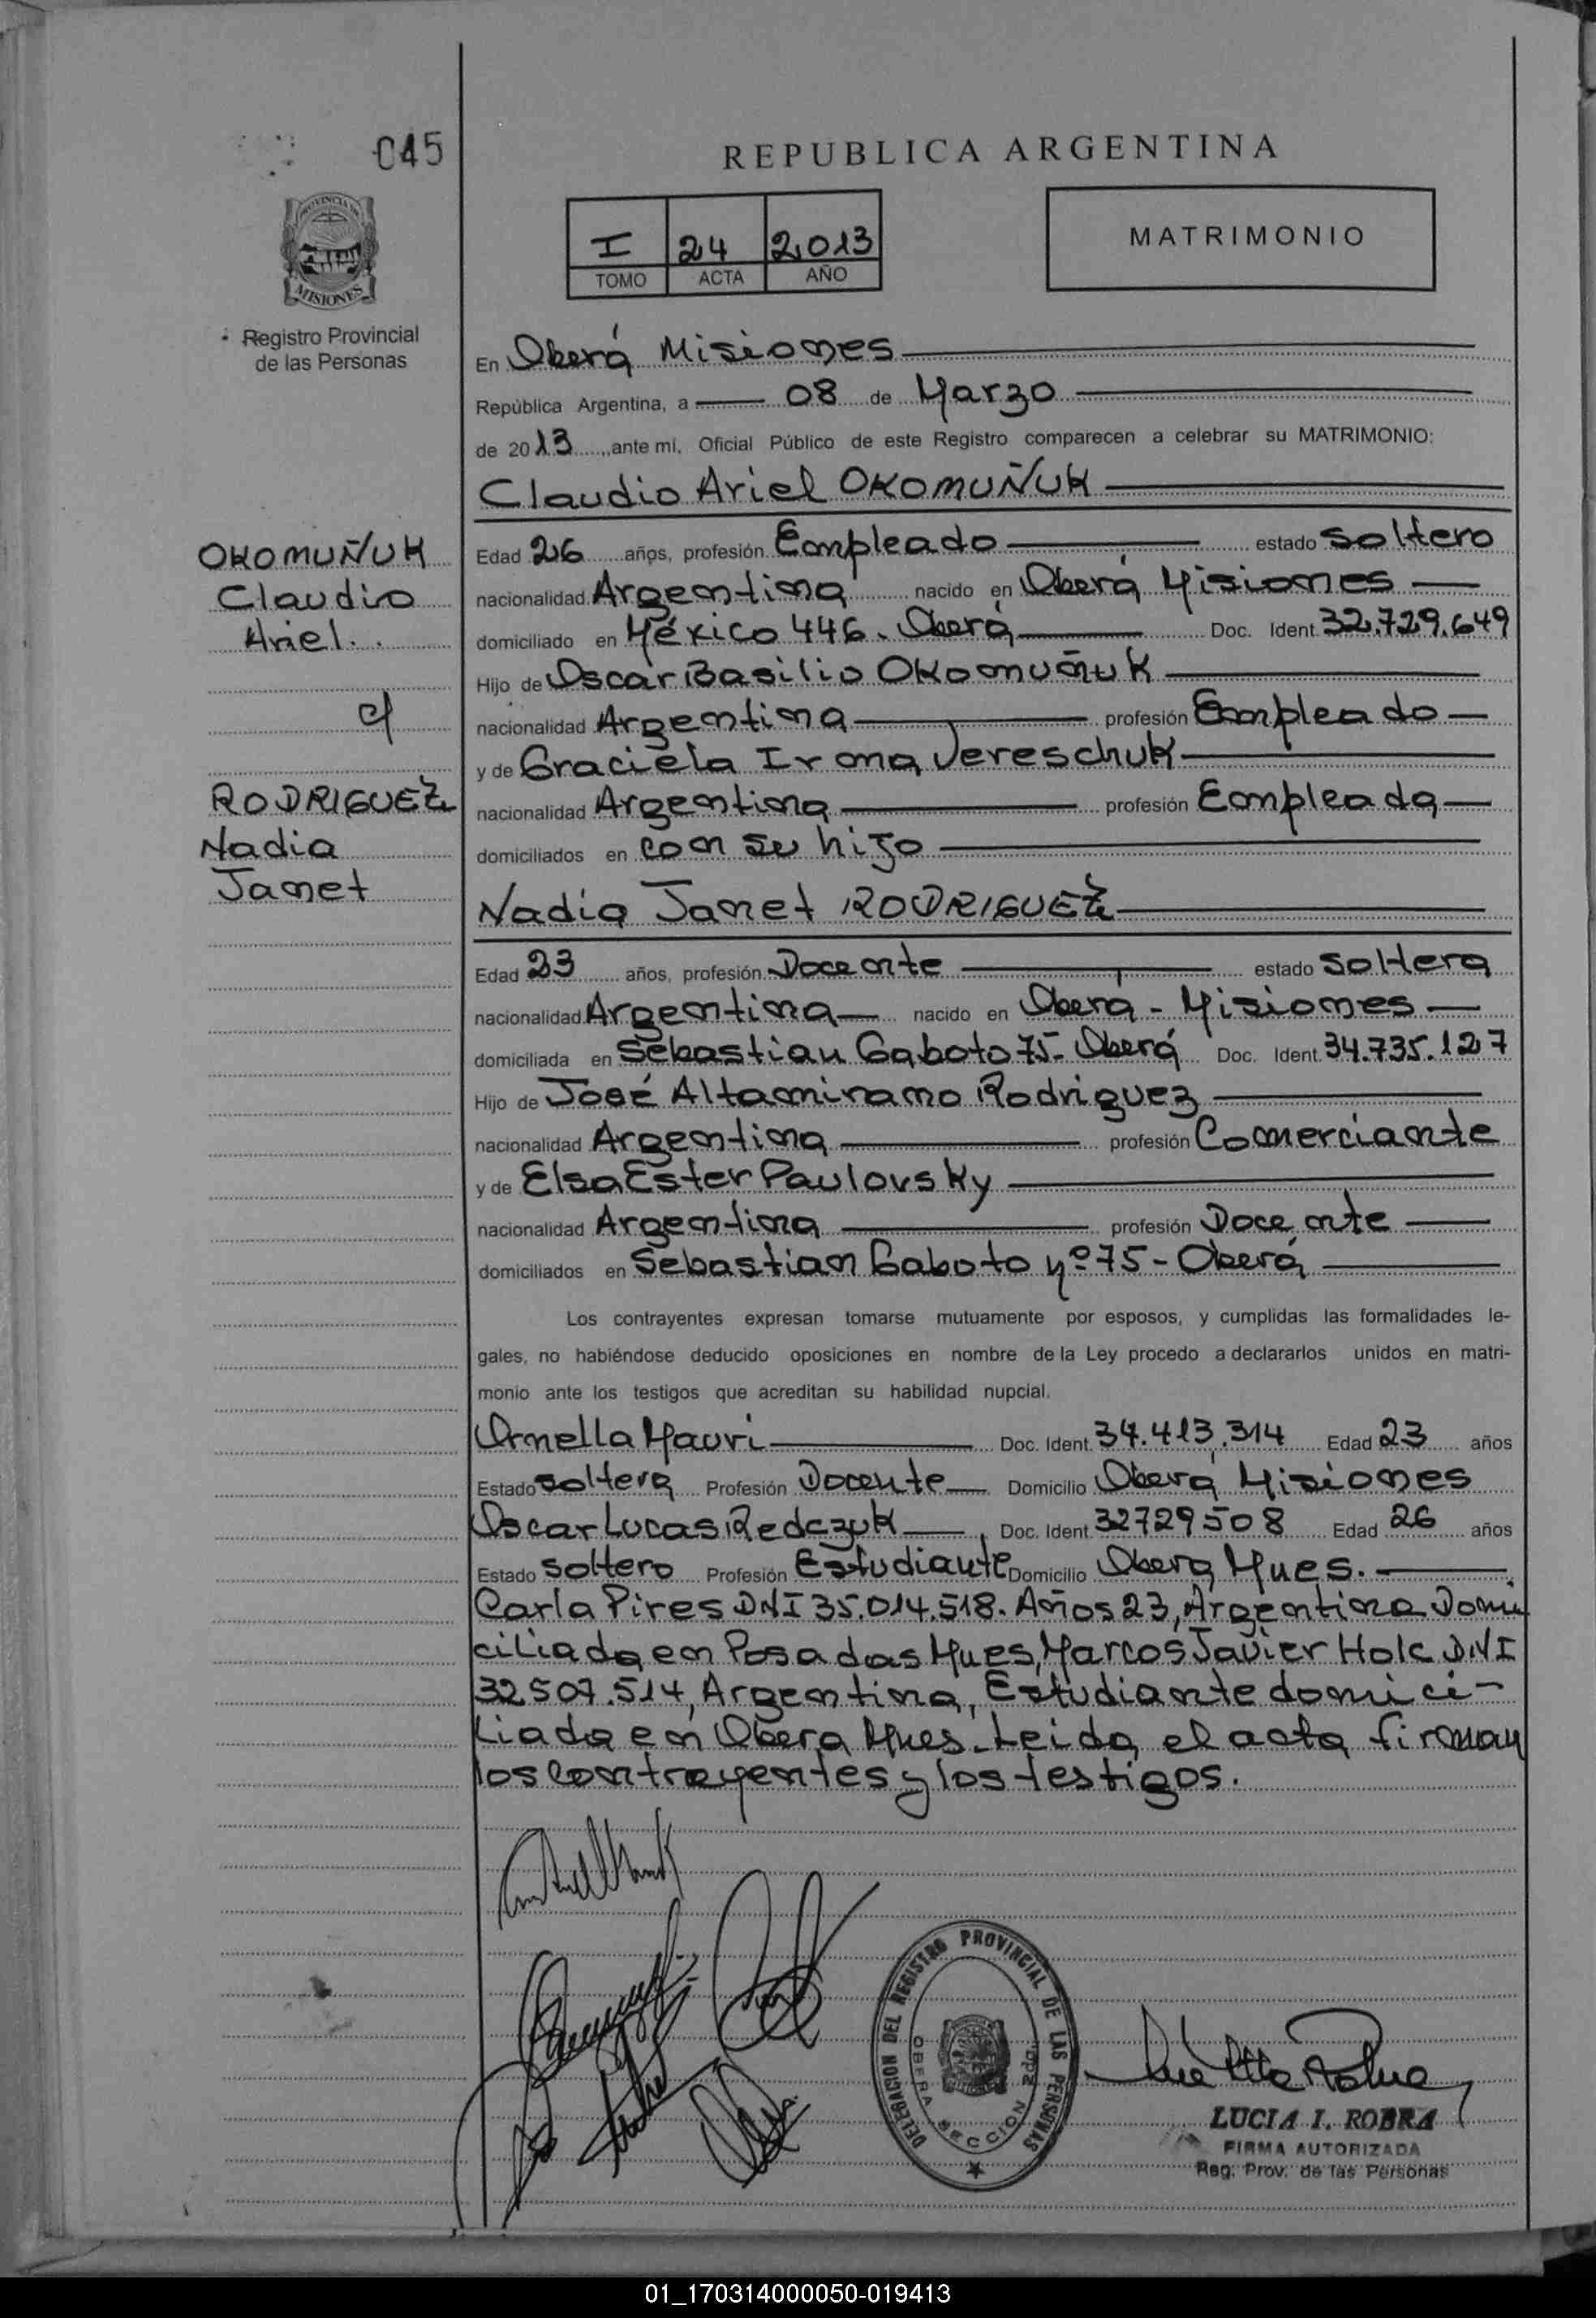 045
REPUBLICA ARGENTINA
PROVINCIA DE
MISIONES
Registro Provincial
de las Personas
I 24 2.013
TOMO ACTA AÑO
MATRIMONIO
En Oberá Misiones
República Argentina, a 08 de Marzo
de 2013, ante mi, Oficial Público de este Registro comparecen a celebrar su MATRIMONIO:
Claudio Ariel OKOMUÑUK
OKOMUÑUK
Claudio
Ariel.
c/
RODRIGUEZ
Nadia
Janet
Edad 26 años, profesión Empleado estado soltero
nacionalidad Argentina nacido en Oberá Misiones
domiciliado en México 446. Oberá Doc. Ident. 32.729.649
Hijo de Oscar Basilio Okomuñuk
nacionalidad Argentina profesión Empleado
y de Graciela Irma Vereschuk
nacionalidad Argentina profesión Empleada
domiciliados en con su hijo
Nadia Janet RODRIGUEZ
Edad 23 años, profesión Docente estado soltera
nacionalidad Argentina nacido en Oberá - Misiones
domiciliada en Sebastian Gaboto 75- Oberá Doc. Ident. 34.735.127
Hijo de José Altamirano Rodriguez
nacionalidad Argentina profesión Comerciante
y de Elsa Ester Paulovsky
nacionalidad Argentina profesión Docente
domiciliados en Sebastian Gaboto Nº 75 - Oberá
Los contrayentes expresan tomarse mutuamente por esposos, y cumplidas las formalidades le-
gales, no habiéndose deducido oposiciones en nombre de la Ley procedo a declararlos unidos en matri-
monio ante los testigos que acreditan su habilidad nupcial.
Ornella Mauri Doc. Ident. 34.413.314 Edad 23 años
Estado soltera Profesión Docente Domicilio Oberá Misiones
Oscar Lucas Redczuk Doc. Ident. 32729508 Edad 26 años
Estado soltero Profesión Estudiante Domicilio Oberá Mnes.
Carla Pires DNI 35.014.518. Años 23, Argentina Domi
ciliada en Posadas Mnes, Marcos Javier Holc DNI
32507.514, Argentina, Estudiante domici-
liada en Oberá Mnes. Leida el acta firman
los contrayentes y los testigos.
DELEGACION DEL REGISTRO PROVINCIAL DE LAS PERSONAS
OBERA SECCION 2da.
LUCIA I. ROBRA
FIRMA AUTORIZADA
Reg. Prov. de las Personas
01_170314000050-019413